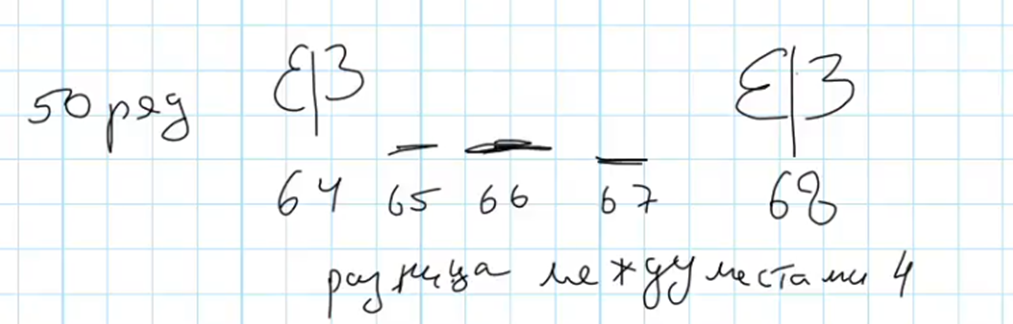 50 ряд Ɛ|З Ɛ|З
64 65 66 67 68
разница между местами 4